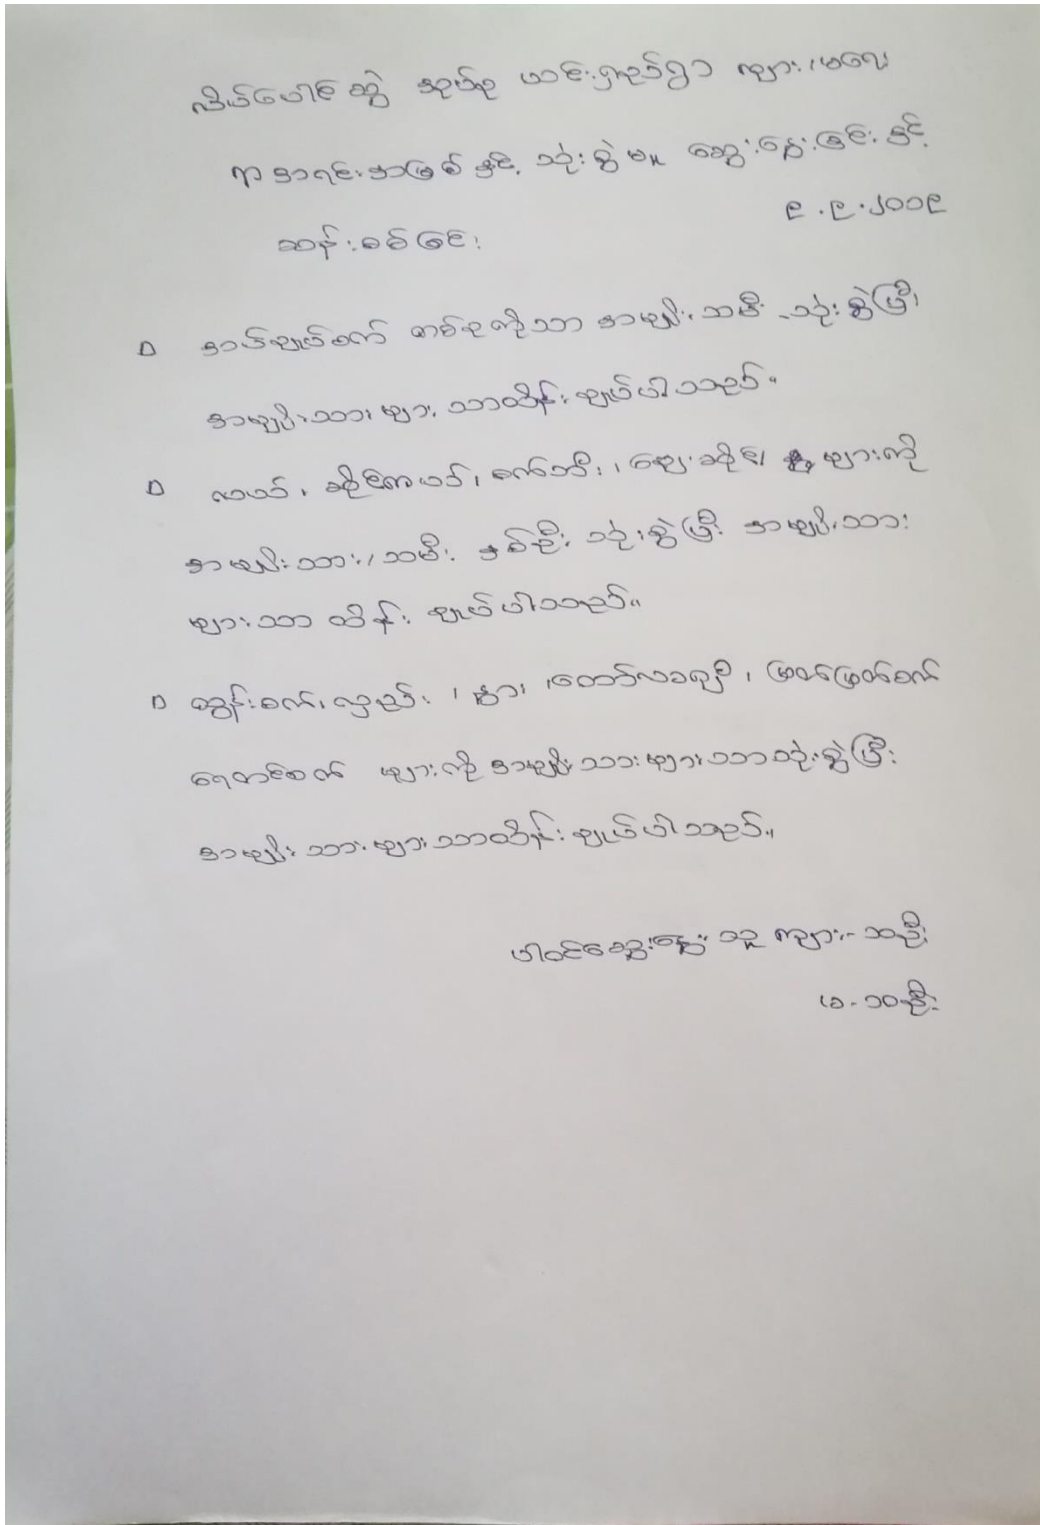 အုပ်စု ယင်းရှည်ရွာ ကျား/မရေး
ရာ အရင်းအမြစ် နှင့် သုံးစွဲမှု ဆွေးနွေးခြင်း နှင့်
၉.၉.၂၀၁၉
ဆန်းစစ်ခြင်း
အပ်ချုပ်စက် တစ်ခုကိုသာ အမျိုးသမီး သုံးစွဲပြီး
အမျိုးသားများ သာထိန်းချုပ်ပါသည်။
လယ်၊ ဆိုင်ကယ်၊ စက်ဘီး၊ ဈေးဆိုင် များကို
အမျိုးသား/သမီး နှစ်ဦး သုံးစွဲပြီး အမျိုးသား
များသာ ထိန်းချုပ်ပါသည်။
ထွန်းစက်၊ လှည်း၊ နွား၊ တော်လာဂျီ၊ မြက်ဖြတ်စက်
ရေတင်စက် များကို အမျိုးသားများသာသုံးစွဲပြီး
အမျိုးသားများသာထိန်းချုပ်ပါသည်။
ပါဝင်ဆွေးနွေးသူ ကျား - ၁ဦး
မ - ၁၀ဦး